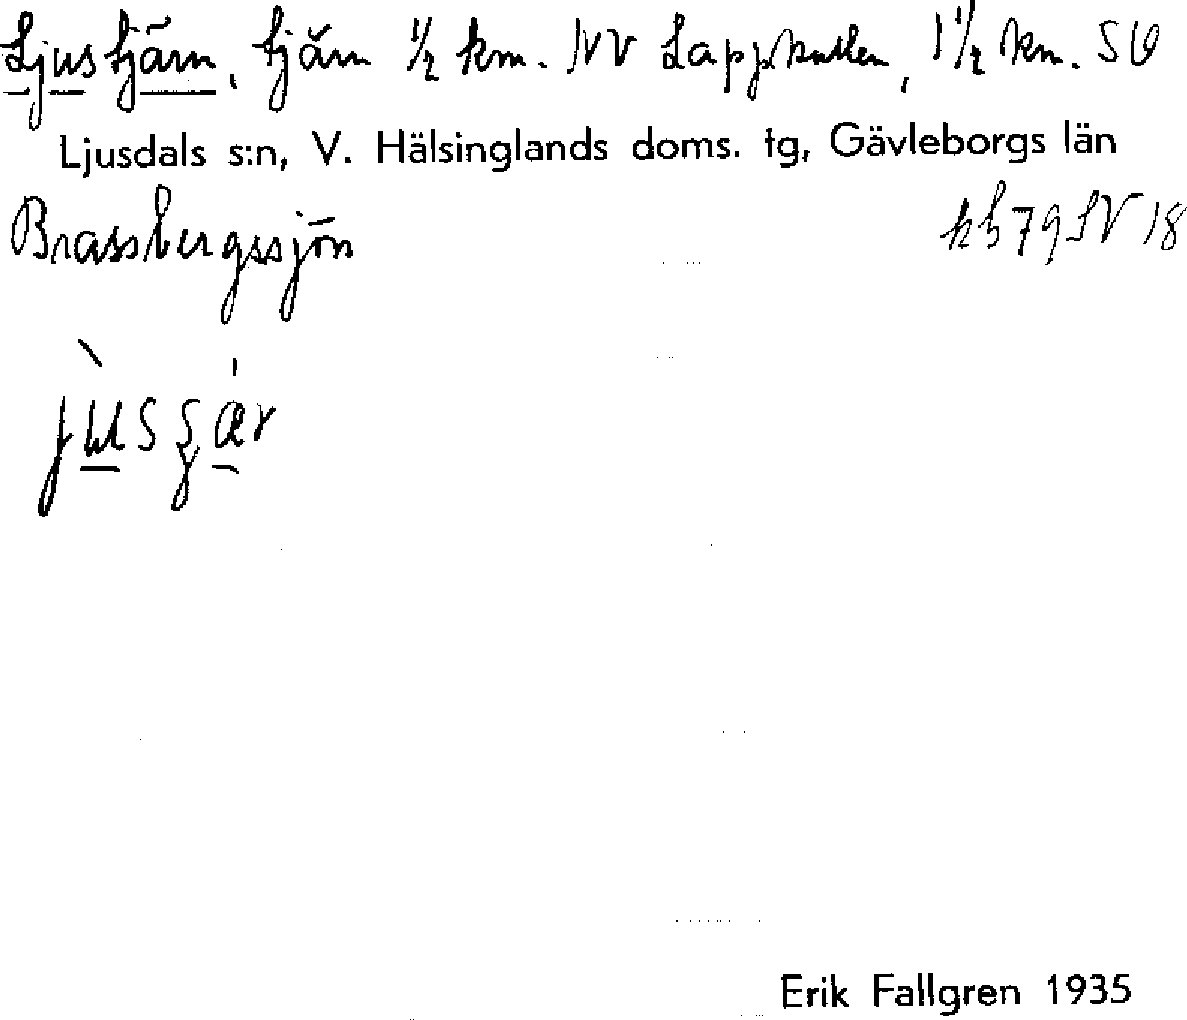 Ljustjärn, tjärn 1/2 km. NV Lappkullen, 1 1/2 km. SO
Ljusdals s:n, V. Hälsinglands doms. tg, Gävleborgs län
Brassbergssjön
kb 79 SV 18
Erik Fallgren 1935